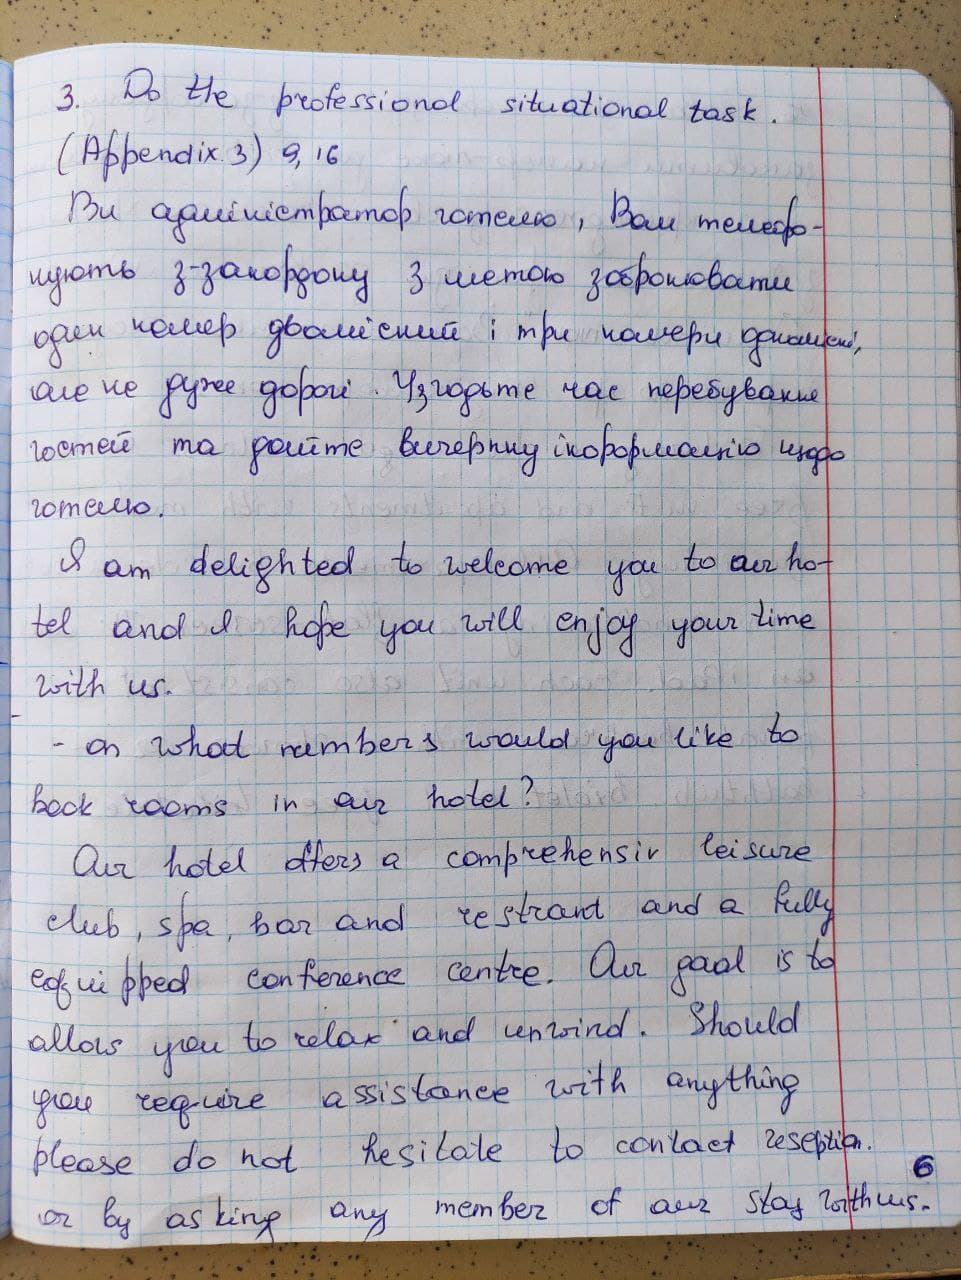 3. Do the professional situational task.
(Appendix 3) 9, 16
Ви адміністратор готелю, Вам телефо-
нують з-закордону з метою забронювати
один номер двомісний і три номери одномісні,
але не дуже дорогі. Узгодьте час перебування
гостей та дайте вичерпну інформацію щодо
готелю.
I am delighted to welcome you to our ho-
tel and I hope you will enjoy your time
with us.
- on what numbers would you like to
book rooms in our hotel?
Our hotel offers a comprehensiv leisure
club, spa, bar and restrant and a fully
equipped conference centre. Our goal is to
allows you to relax and unwind. Should
you require assistance with anything
please do not hesitate to contact reseption.
or by asking any member of our stay with us.
6